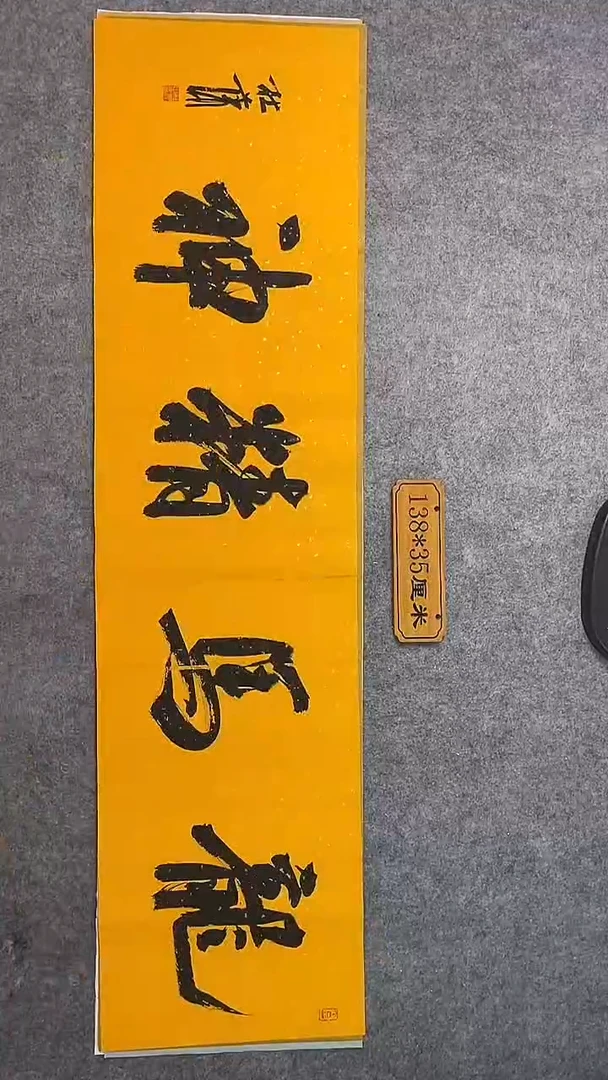 龍馬精神
138*35厘米